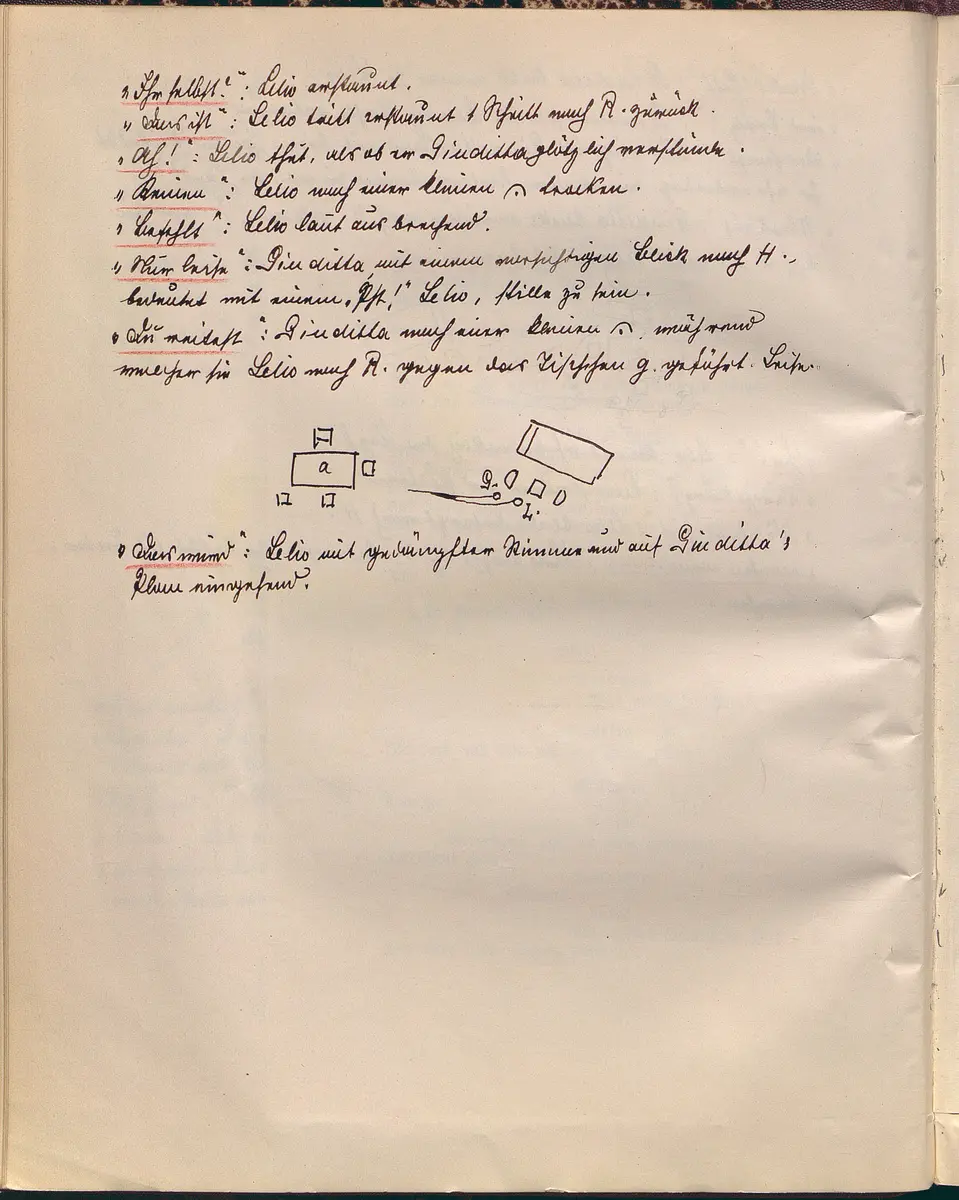 „Ihr selbst?“: Lelio erstaunt.
„Das ist“: Lelio tritt erstaunt 1 Schritt nach R. zurück.
„Ah!“: Lelio thut, als ob er Giuditta plötzlich verstünde.
„Keinen“: Lelio nach einer kleinen 𝄐 trocken.
„Befehlt“: Lelio laut ausbrechend.
„Nur leise“: Giuditta, mit einem vorsichtigen Blick nach H.,
bedeutet mit einem „Pst!“ Lelio, stille zu sein.
„Du weitest“: Giuditta nach einer kleinen 𝄐, während
welcher sie Lelio nach R. gegen das Tischchen g. geführt. Leise.
a
G.
L.
„Das wird“: Lelio mit gedämpfter Stimme und auf Giuditta's
Plan eingehend.